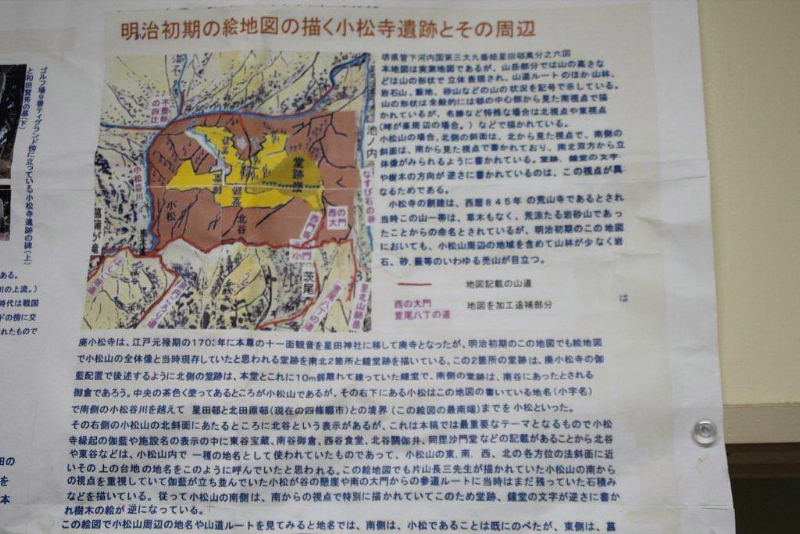 明治初期の絵地図の描く小松寺遺跡とその周辺
堺県管下河内国第三大九番組星田邨萬分之六図
本地図は実測地図であるが、山岳部分では山の高きな
どは山の形状で立体表現され、山道ルートのほか山林、
岩石山、藪地、砂山などの山の状況を記号で示している。
山の形状は全般的には邨の中心部から見た南視点で描
かれているが、名勝など特殊な場合は北視点や東視点
などで描かれている。
小松山の場合、北側の斜面は、北から見た視点で、南側の
斜面は、南から見た視点で書かれており、南北双方から立
体像がみられるように書かれている。堂跡、鐘堂の文字
や樹木の方向が逆さに書かれているのは、この視点が異
なるためである。
小松寺の創建は、西暦845年の荒山寺であるとされ
当時この山一帯は、草木もなく、荒涼たる岩砂山であっ
たことからの命名とされているが、明治初期のこの地図
においても、小松山周辺の地域を含めて山林が少なく岩
石、砂、藪等のいわゆる禿山が目立つ。
地図記載の山道
西の大門
菅尾八丁の道
地図を加工追補分
は
池ノ内
なすび石の谷
堂跡
小松
北谷
西の大門
茨尾
ゴルフ場9番ティグランド傍に立っている小松寺遺跡の碑(上)
と和田賢秀の墓(下)
ある。
川の上流。)
時代は戦国
ドの傍に交
れたもので
廃小松寺は、江戸元禄期の1703年に本尊の十一面観音を星田神社に移して廃寺となったが、明治初期のこの地図でも絵地図
で小松山の全体像と当時現存していたと思われる堂跡を南北2箇所と鐘堂跡を描いている。この2箇所の堂跡は、廃小松寺の伽
藍配置で後述するように北側の堂跡は、本堂とこれに10m餠離れて建っていた鐘堂で、南側の堂跡は、南谷にあったとされる
御倉であろう。中央の茶色く塗ってあるところが小松山であるが、その右下にある小松はこの地図の書いている地名(小字名)
で南側の小松谷川を越えて 星田邨と北田原邨(現在の四條畷市)との境界(この絵図の最南端)までを小松といった。
その右側の小松山の北斜面にあたるところに北谷という表示があるが、これは本稿では最重要なテーマとなるもので小松
寺縁起の伽藍や施設名の表示の中に東谷宝蔵、南谷御倉、西谷食堂、北谷閼伽井、阿毘沙門堂などの記載があることから北谷
や東谷などは、小松山内で 一種の地名として使われていたものであって、小松山の東、南、西、北の各方位の法斜面に近
いその上の台地の地名をこのように呼んでいたと思われる。この絵地図でも片山長三先生が描かれていた小松山の南から
の視点を重視していて伽藍が立ち並んでいた小松が谷の懸崖や南の大門からの参道ルートに当時はまだ残っていた石積み
などを描いている。従って小松山の南側は、南からの視点で特別に描かれていてこのため堂跡、鐘堂の文字が逆さに書か
れ樹木の絵が逆になっている。
この絵図で小松山周辺の地名や山道ルートを見てみると地名では、南側は、小松であることは既にのべたが、東側は、菖
田の
を
本